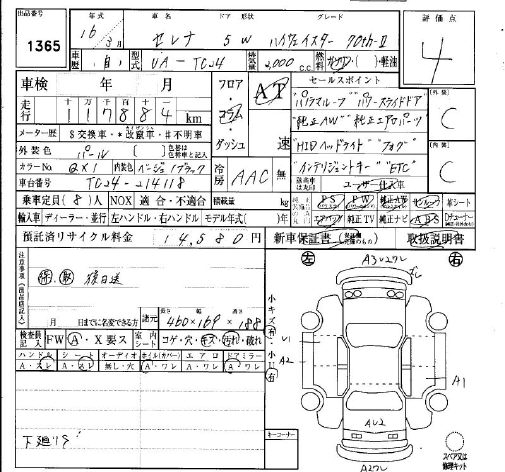 出品番号
1365
年式
16年
3月
車名
セレナ
ドア 形状
5 W
グレード
ハイウェイスター 70th-II
評価点
4
車歴
自
型式
UA - TC24
排気量
2,000 c.c.
燃料
ガソリン
・軽油
車検 年 月
フロア
・
コラム
・
ダッシュ
AT
速
セールスポイント
"パノラマルーフ" "パワースライドドア"
"純正AW" "純正エアロパーツ"
"HIDヘッドライト" "フォグ"
"インテリジェントキー" "ETC"
ユーザー仕入車
外装
C
内装
C
走行
十 万 千 百 十 一
117884 km
メーター歴
$ 交換車・* 改竄車・# 不明車
外装色
パール
カラーNo
QX1
内装色
ベージュ/ブラック
車台番号
TC24-214118
冷房
AAC
無
乗車定員 (8) 人
NOX
適合・不適合
輸入車
ディーラー・並行
左ハンドル・右ハンドル
モデル年式( )年
PS
PW
革シート
エアバッグ
純正TV
純正ナビ
ABS
預託済リサイクル料金
14,580円
新車保証書
取扱説明書
注意事項
後日送
月 日までに名変できる方
諸元
長さ 幅 高さ
460 × 169 × 188
検査員記入
FW
A・X要ス
室内シート
コゲ・穴・キズ・汚れ・破れ
ハンドル
シート
オーディオ
ホイル(カバー)
エアロ
ドアミラー
A・スレ
A・スレ
無し・穴
A・ワレ
A・ワレ
A・ワレ
下廻りサ
小キズ
有
小U
有
キーコーナー
左
右
A3U2ワレ
U1
A2
A1
AU2
A2ワレ
スペア又は
修理キット